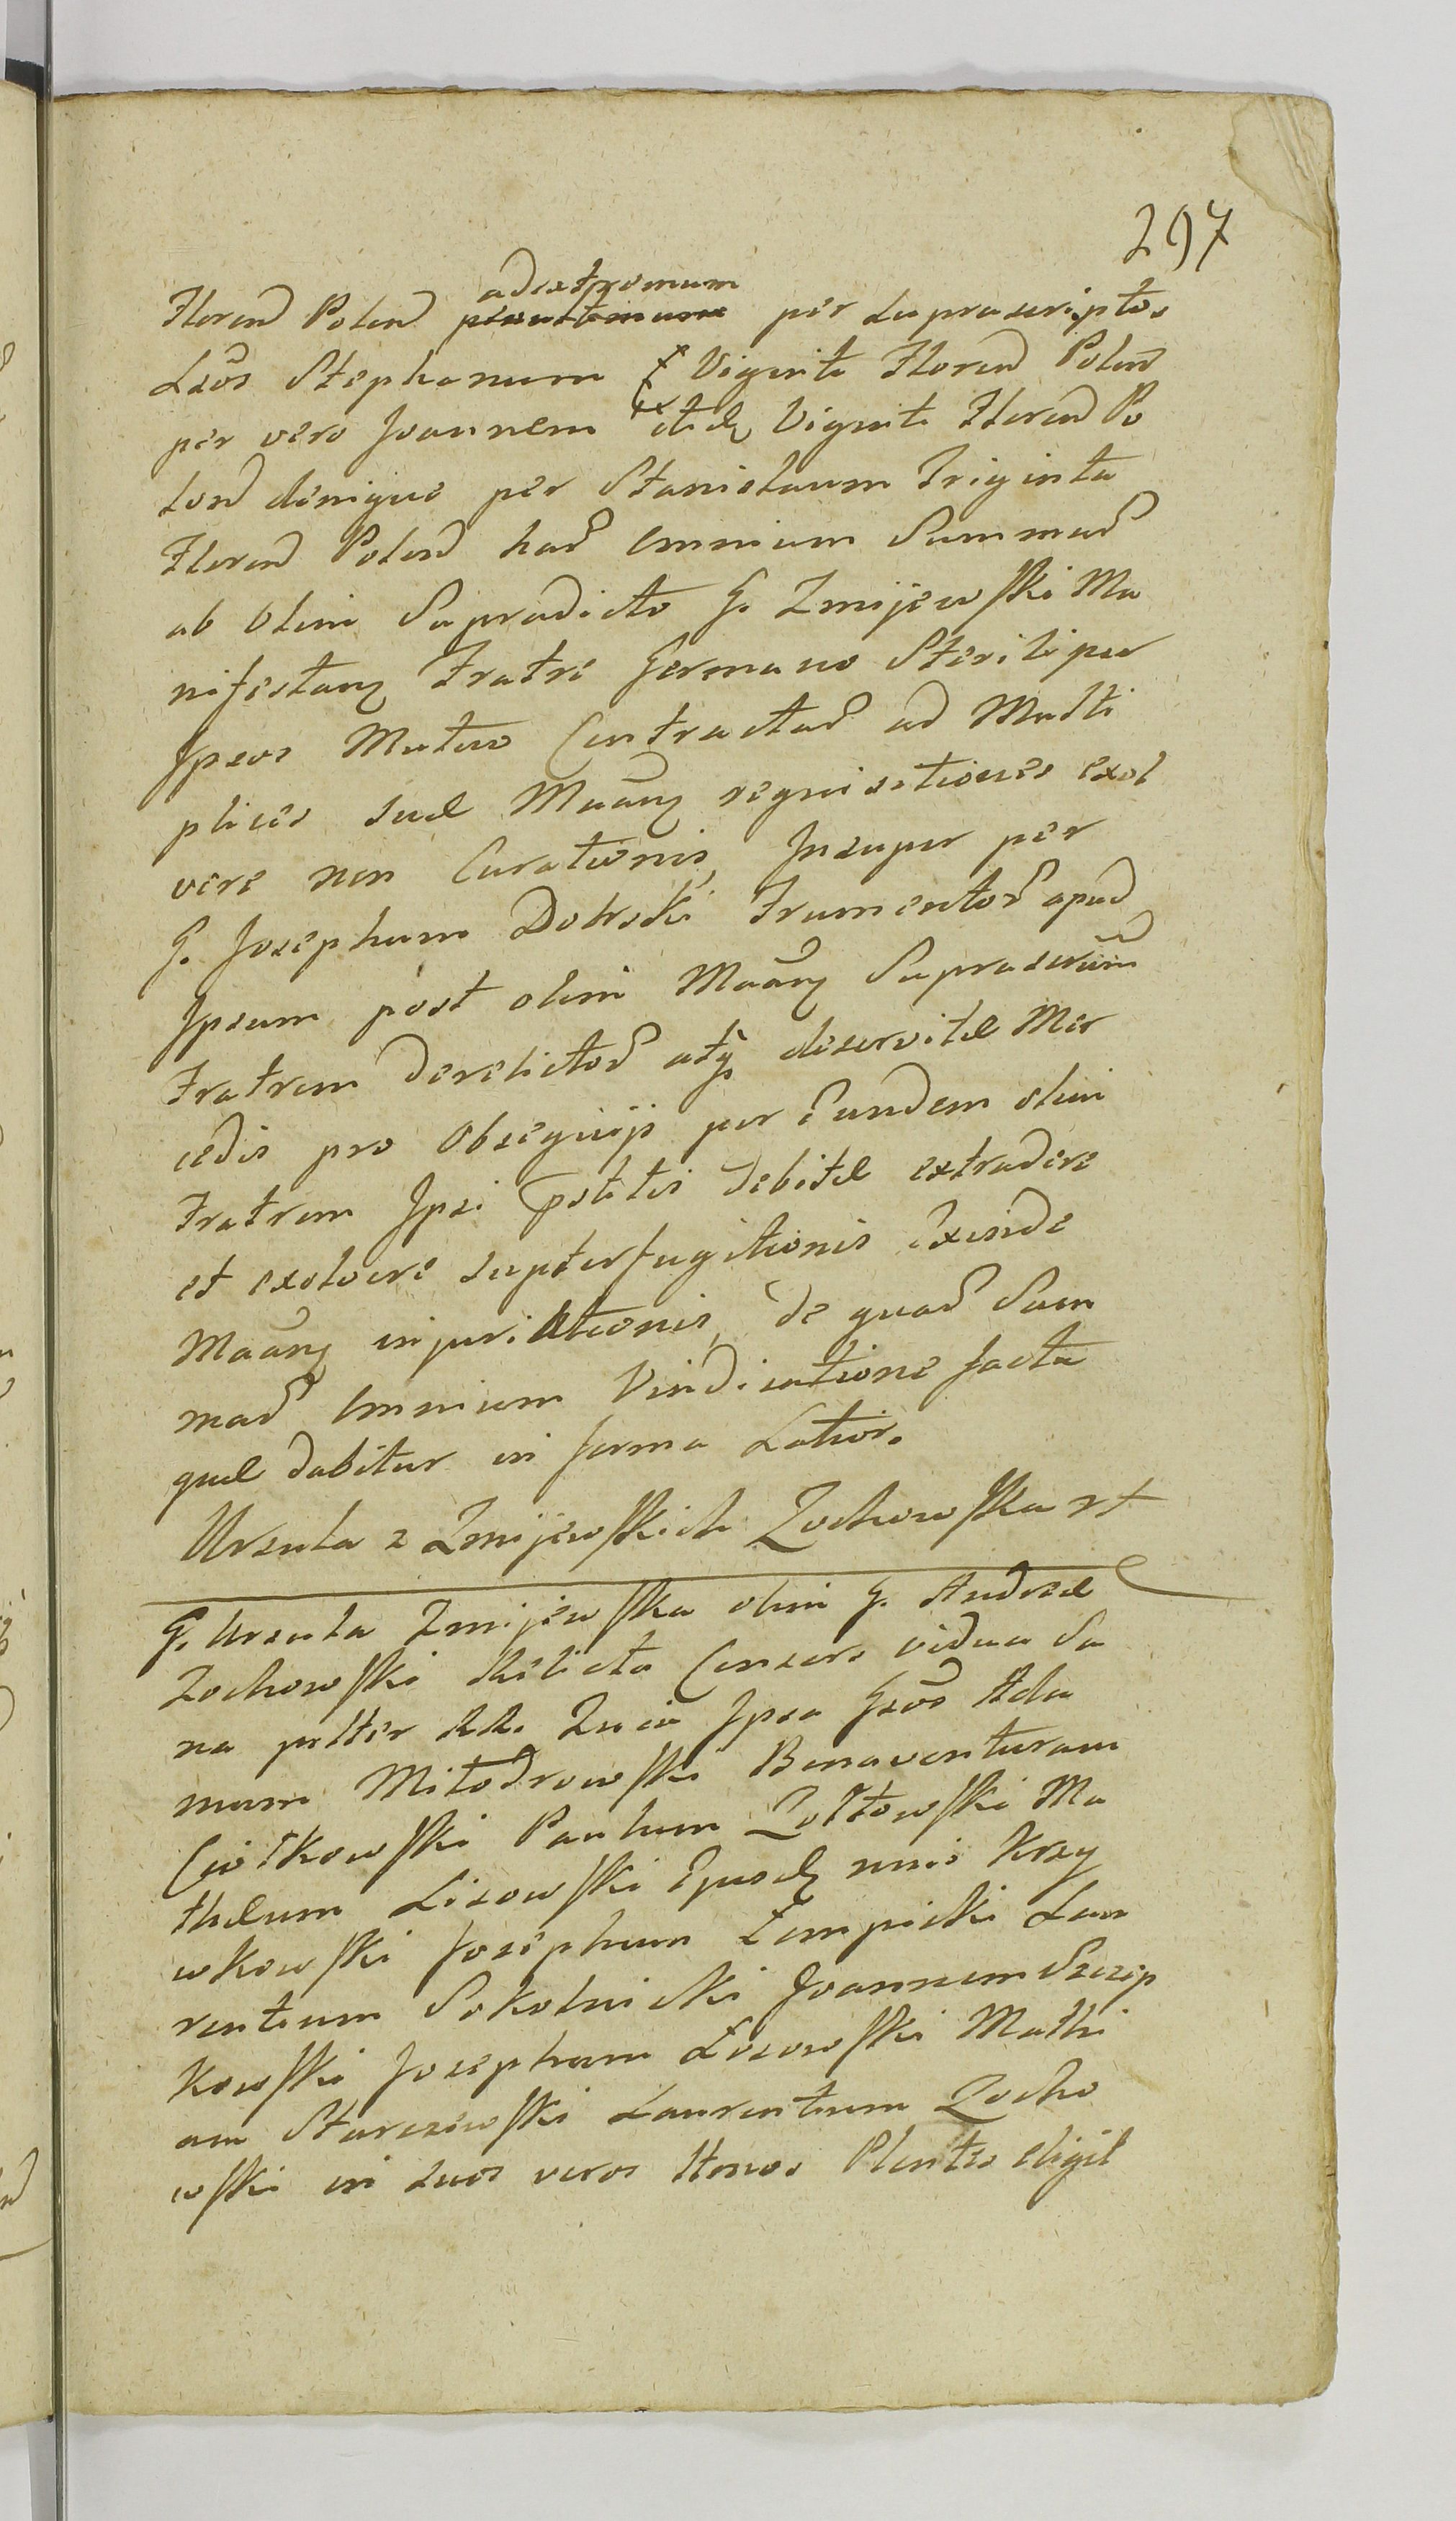 297
adextremum
Floren Polon per suprascriptos
Lsos Stephanum Viginti Floren Polon
per vero Joannem itidq Viginti Floren Po
lon denique per Stanislaum Triginta
Floren Polon har omnium Summar
ab olim Supradicto G. Zmijewski Ma
nifestanq Fratre Germano Sterili per
Ipsos Mutuo Contractar ad Multi
plices suæ Maanq requisitiones exol
vere non Curationis, Insuper per
G. Josephum Dobski Frumentor apud
Ipsum post olim Maanq Suprascrium
Fratrem derelictor atq deservitæ Mer
cedis pro Obsequijs per Eundem olim
Fratrem Ipsi pstitis debitæ extradere
et exolvere supterfugitionis Exinde
Maanq injuriationis, de quar Sum
mar omnium Vindicatione facta
quæ dabitur in forma Latior.
Ursula z Zmijewskich Zochowska xt
G. Ursula Zmijewska olim G. Andreæ
Zochowski Relicta Consors vidua Sa
na pstter RR. Quia Ipsa Gsos Ada
mum Miłodrowski Bonaventuram
Ciołkowski Paulum Zołtowski Ma
thæum Lisowski Ejusdq nnis Krzy
wkowski Josephum Łempicki Lau
rentium Sokolnicki Joannem Szczep
kowski Josephum Łosowski Mathi
am Starczewski Laurentium Zocho
wski in suos veros ttonos Plentes eligit